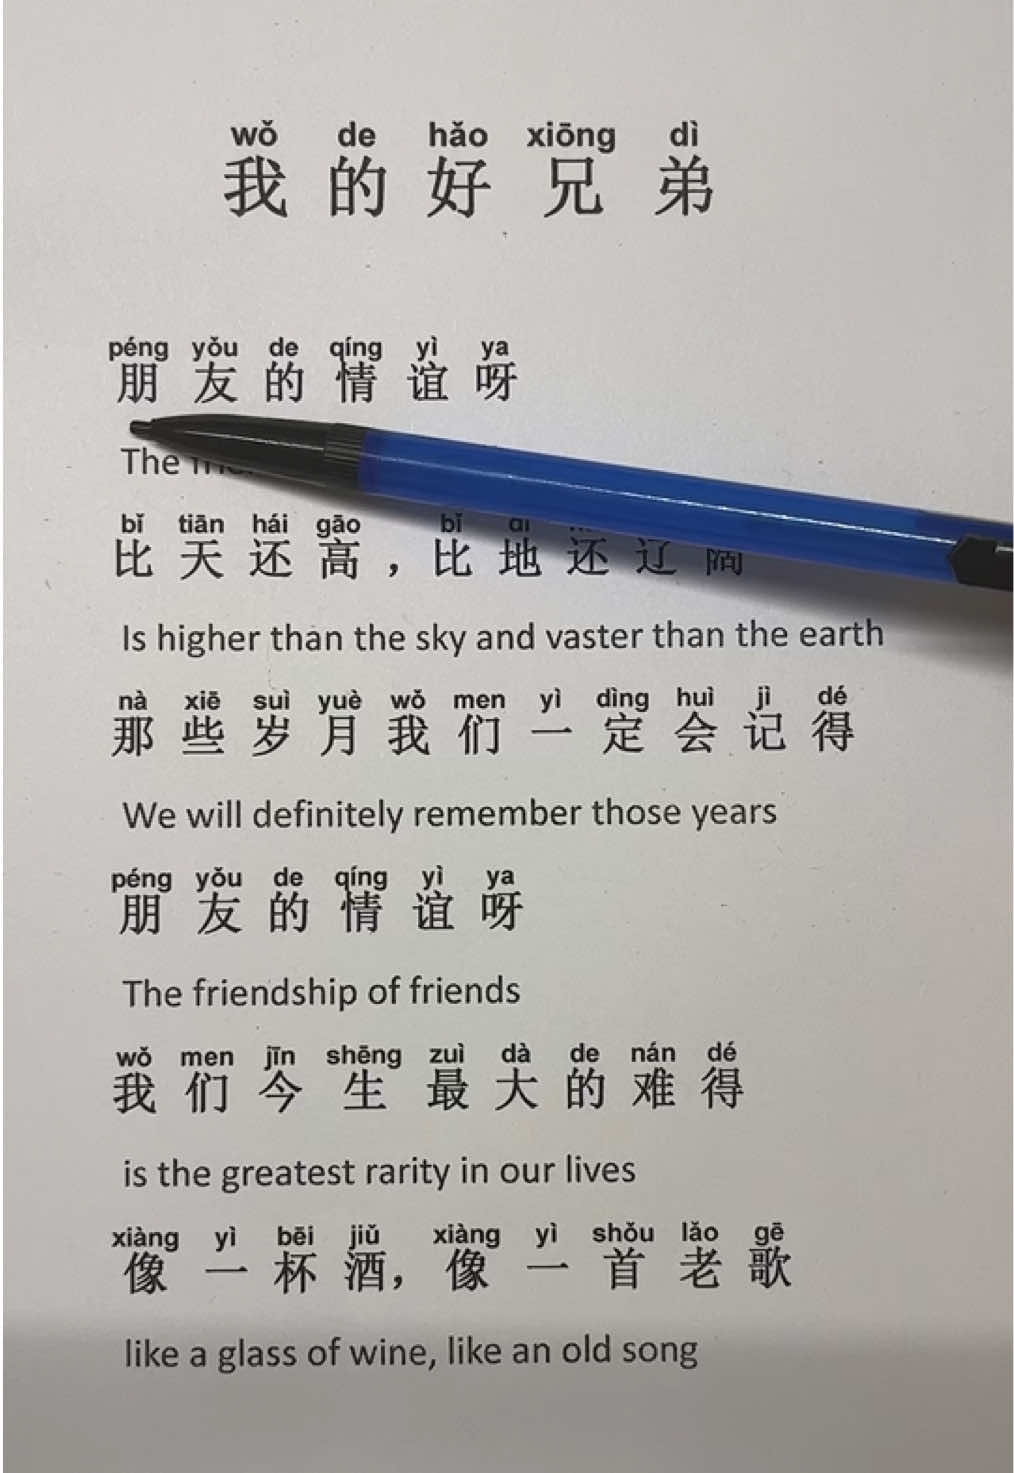 wǒ de hǎo xiōng dì
我的好兄弟
péng yǒu de qíng yì ya
朋友的情谊呀
The
bǐ tiān hái gāo bǐ
比天还高，比地还辽阔
Is higher than the sky and vaster than the earth
nà xiē suì yuè wǒ men yì dìng huì jì dé
那些岁月我们一定会记得
We will definitely remember those years
péng yǒu de qíng yì ya
朋友的情谊呀
The friendship of friends
wǒ men jīn shēng zuì dà de nán dé
我们今生最大的难得
is the greatest rarity in our lives
xiàng yì bēi jiǔ xiàng yì shǒu lǎo gē
像一杯酒，像一首老歌
like a glass of wine, like an old song